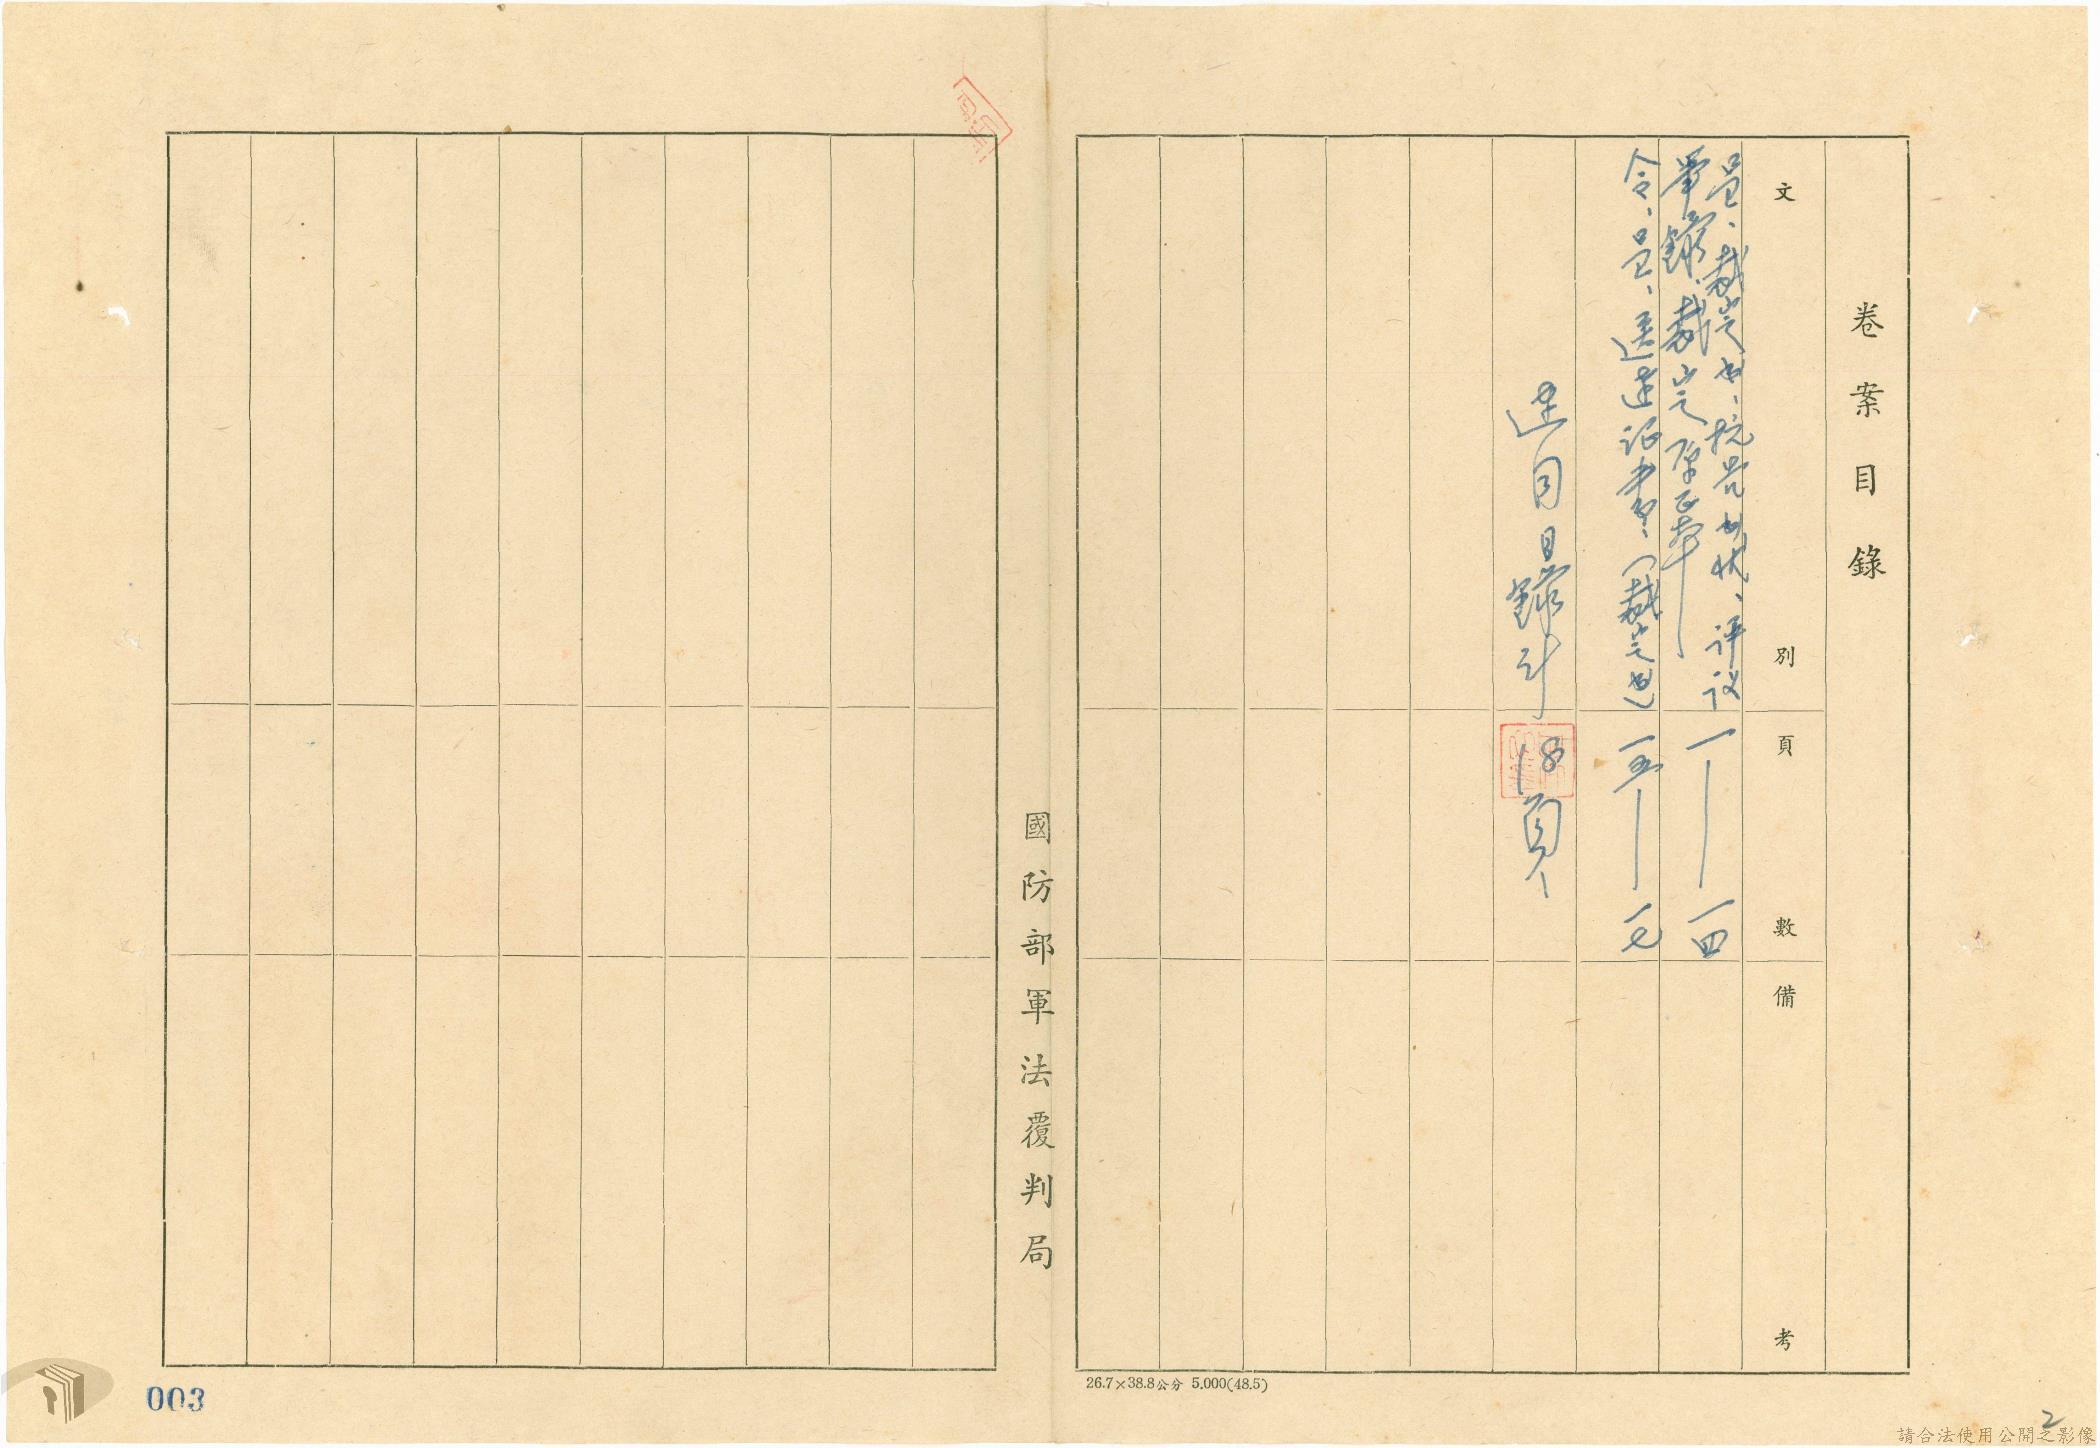 卷案目錄
文別
頁數
備考
呈、裁定書、抗告書狀、评议
筆錄、裁定原正本
一——一四
令、呈、送达证書、(裁定書)
一五——一七
連同目錄計18頁
國防部軍法覆判局
26.7×38.8公分 5.000(48.5)
003
2
請合法使用公開之影像